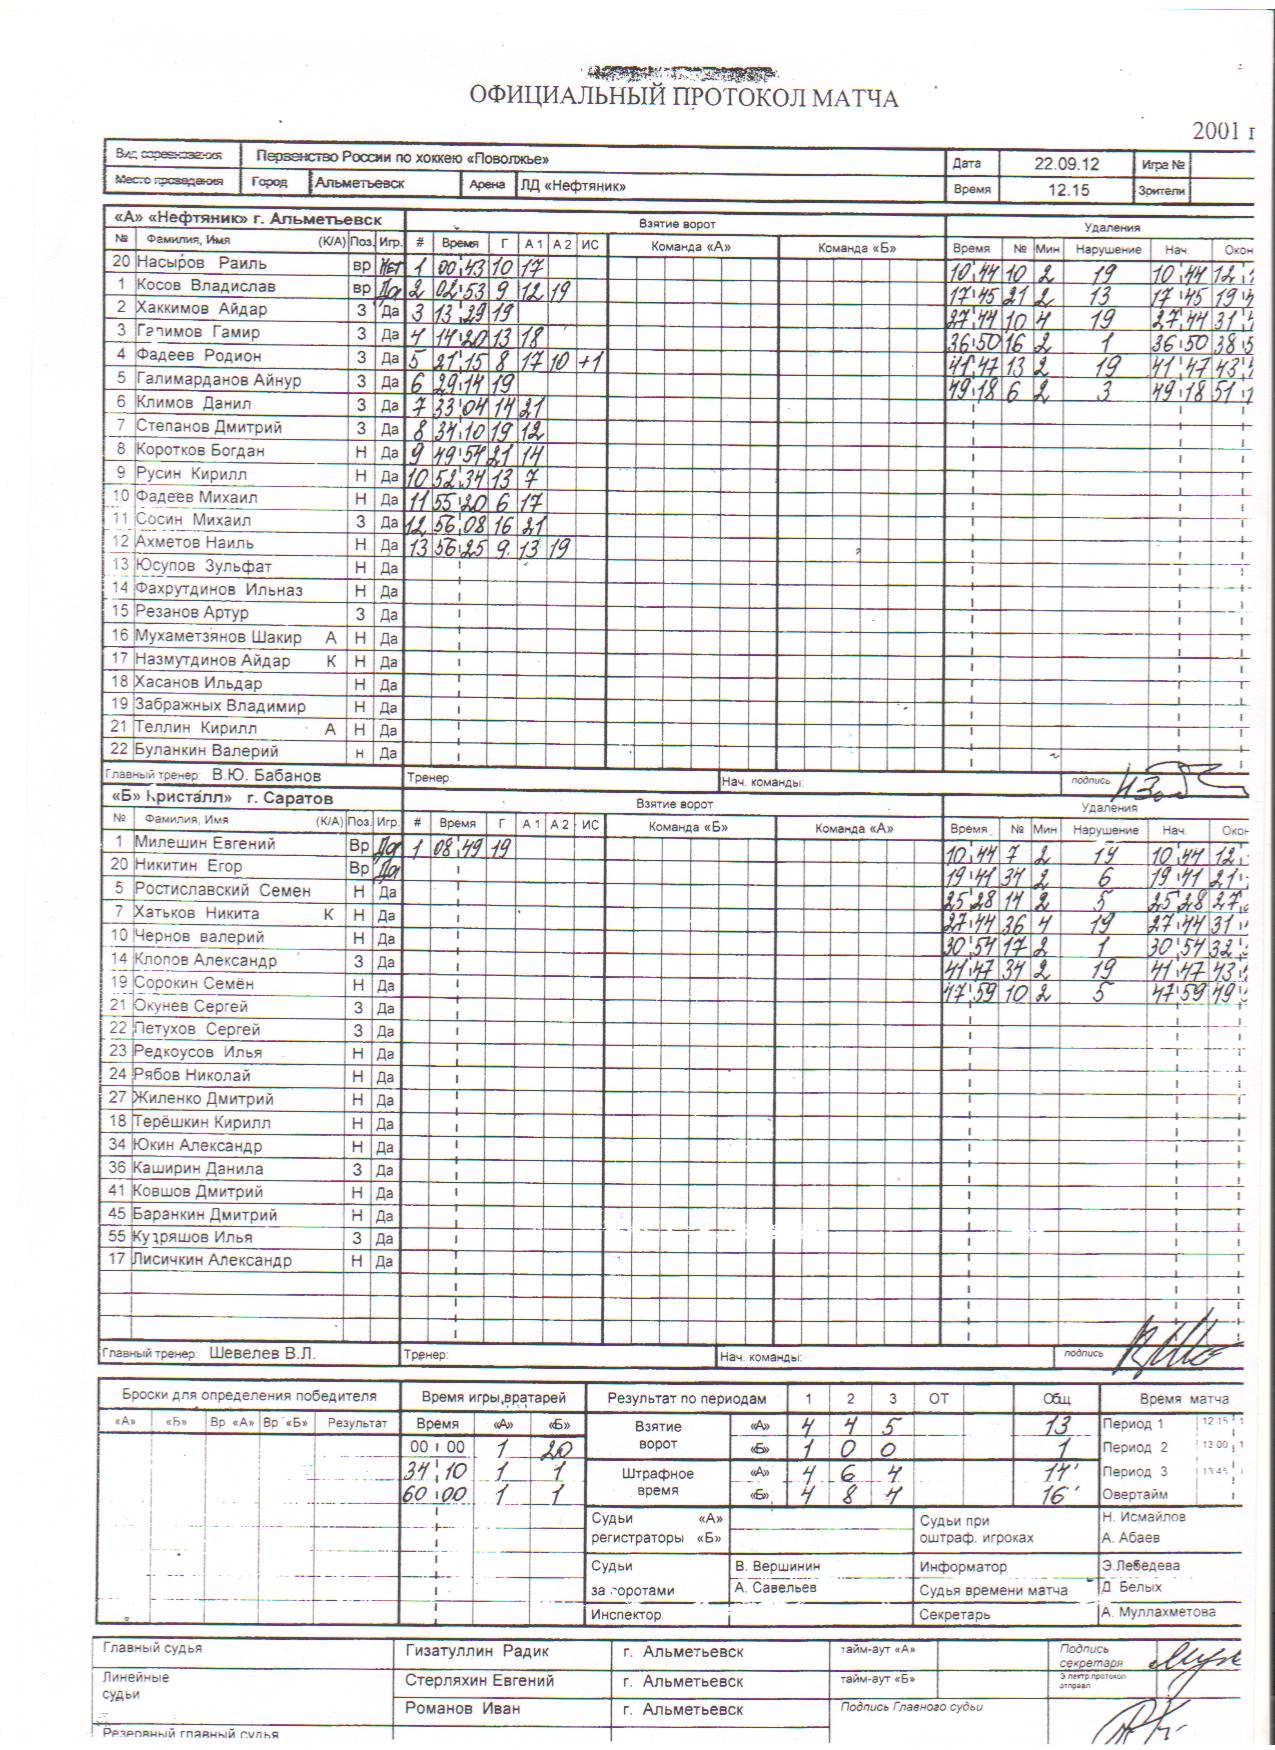 ОФИЦИАЛЬНЫЙ ПРОТОКОЛ МАТЧА
2001 г
Вид соревнования Первенство России по хоккею «Поволжье» Дата 22.09.12 Игра №
Место проведения Город Альметьевск Арена ЛД «Нефтяник» Время 12.15 Зрители
«А» «Нефтяник» г. Альметьевск Взятие ворот Удаления
№ Фамилия, Имя (К/А) Поз. Игр. # Время Г А 1 А 2 ИС Команда «А» Команда «Б» Время № Мин Нарушение Нач. Окон
20 Насыров Раиль вр Нет 1 00:43 10 17 10:44 10 2 19 10:44 12
1 Косов Владислав вр Да 2 02:53 9 12 19 17:45 21 2 13 17:45 19
2 Хаккимов Айдар З Да 3 13:29 19 27:44 10 4 19 27:44 31
3 Галимов Гамир З Да 4 14:20 13 18 36:50 16 2 1 36:50 38
4 Фадеев Родион З Да 5 21:15 8 17 10 +1 41:47 13 2 19 41:47 43
5 Галимарданов Айнур З Да 6 29:14 19 49:18 6 2 3 49:18 51
6 Климов Данил З Да 7 33:04 14 21
7 Степанов Дмитрий З Да 8 34:10 19 12
8 Коротков Богдан Н Да 9 49:54 21 14
9 Русин Кирилл Н Да 10 52:34 13 7
10 Фадеев Михаил Н Да 11 55:20 6 17
11 Сосин Михаил З Да 12 56:08 16 21
12 Ахметов Наиль Н Да 13 56:25 9 13 19
13 Юсупов Зульфат Н Да
14 Фахрутдинов Ильназ Н Да
15 Резанов Артур З Да
16 Мухаметзянов Шакир А Н Да
17 Назмутдинов Айдар К Н Да
18 Хасанов Ильдар Н Да
19 Забражных Владимир Н Да
21 Теллин Кирилл А Н Да
22 Буланкин Валерий н Да
Главный тренер: В.Ю. Бабанов Тренер: Нач. команды: подпись
«Б» Кристалл» г. Саратов Взятие ворот Удаления
№ Фамилия, Имя (К/А) Поз. Игр. # Время Г А 1 А 2 ИС Команда «Б» Команда «А» Время № Мин Нарушение Нач. Окон
1 Милешин Евгений Вр Да 1 08:49 19 10:44 7 2 19 10:44 12
20 Никитин Егор Вр Да 19:41 34 2 6 19:41 21
5 Ростиславский Семен Н Да 25:28 14 2 5 25:28 27
7 Хатьков Никита К Н Да 27:44 36 4 19 27:44 31
10 Чернов валерий Н Да 30:54 17 2 1 30:54 32
14 Клопов Александр З Да 41:47 34 2 19 41:47 43
19 Сорокин Семён Н Да 47:59 10 2 5 47:59 49
21 Окунев Сергей З Да
22 Петухов Сергей З Да
23 Редкоусов Илья Н Да
24 Рябов Николай Н Да
27 Жиленко Дмитрий Н Да
18 Терёшкин Кирилл Н Да
34 Юкин Александр Н Да
36 Каширин Данила З Да
41 Ковшов Дмитрий Н Да
45 Баранкин Дмитрий Н Да
55 Кудряшов Илья З Да
17 Лисичкин Александр Н Да
Главный тренер: Шевелев В.Л. Тренер: Нач. команды: подпись
Броски для определения победителя Время игры,вратарей Результат по периодам 1 2 3 ОТ Общ Время матча
«А» «Б» Вр «А» Вр «Б» Результат Время «А» «Б» Взятие ворот «А» 4 4 5 13 Период 1 12 15
00:00 1 20 «Б» 1 0 0 1 Период 2 13 00
34:10 1 1 Штрафное время «А» 4 6 4 14 Период 3 13 45
60:00 1 1 «Б» 4 8 4 16 Овертайм
Судьи «А» Судьи при Н. Исмайлов
регистраторы «Б» оштраф. игроках А. Абаев
Судьи В. Вершинин Информатор Э.Лебедева
за воротами А. Савельев Судья времени матча Д. Белых
Инспектор Секретарь А. Муллахметова
Главный судья Гизатуллин Радик г. Альметьевск тайм-аут «А» Подпись секретаря
Линейные судьи Стерляхин Евгений г. Альметьевск тайм-аут «Б» Электр.протокол отправл
Романов Иван г. Альметьевск Подпись Главного судьи
Резервный главный судья